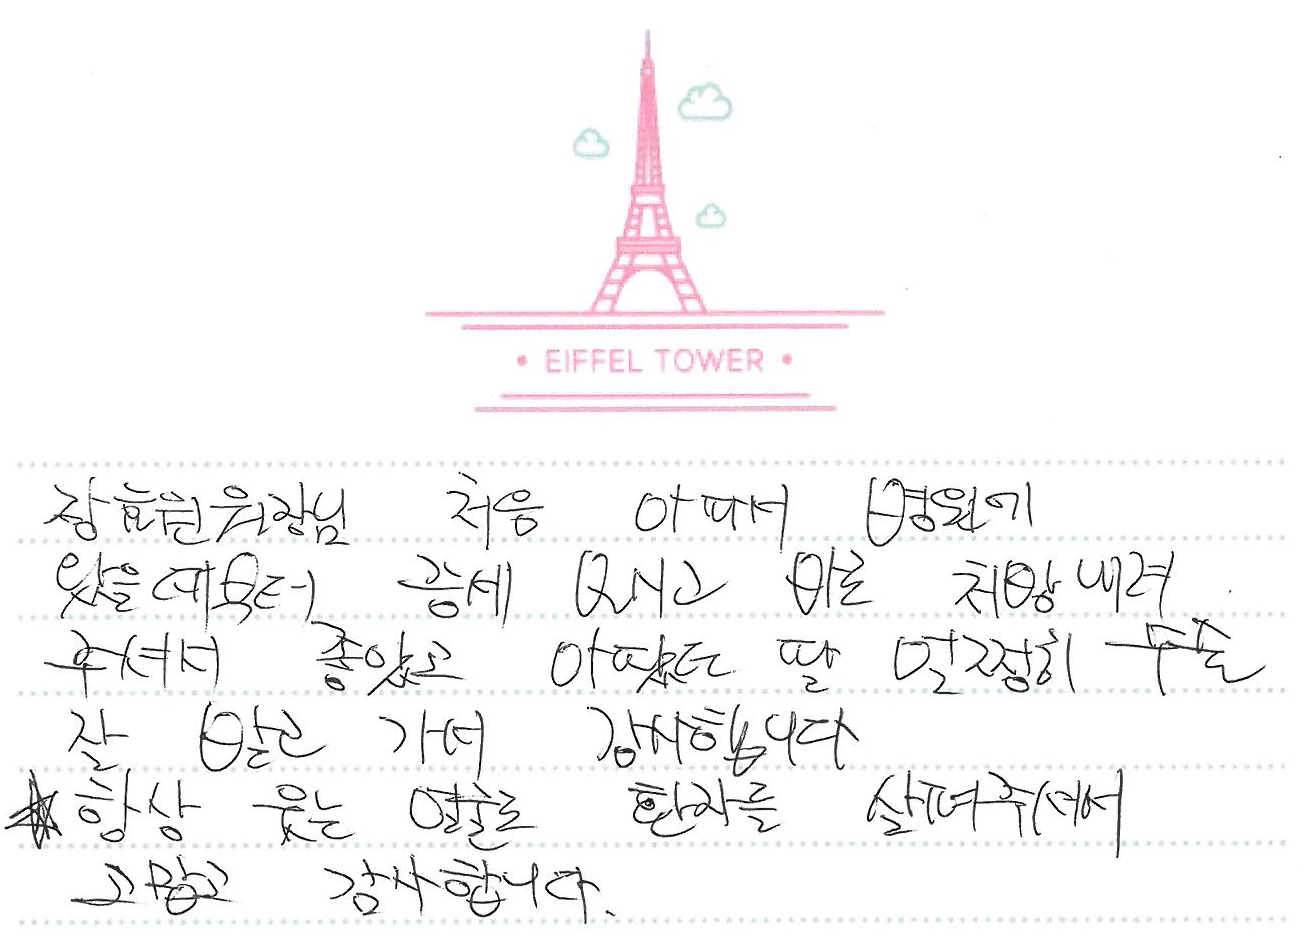 • EIFFEL TOWER •
장효원원장님 처음 아파서 병원에
왔을때부터 공세 보시고 바로 처방내려
주셔서 좋았고 아팠던 딸 열정히 수술
잘 받고 가서 감사합니다
☆ 항상 웃는 얼굴로 환자를 살펴주셔서
고맙고 감사합니다.